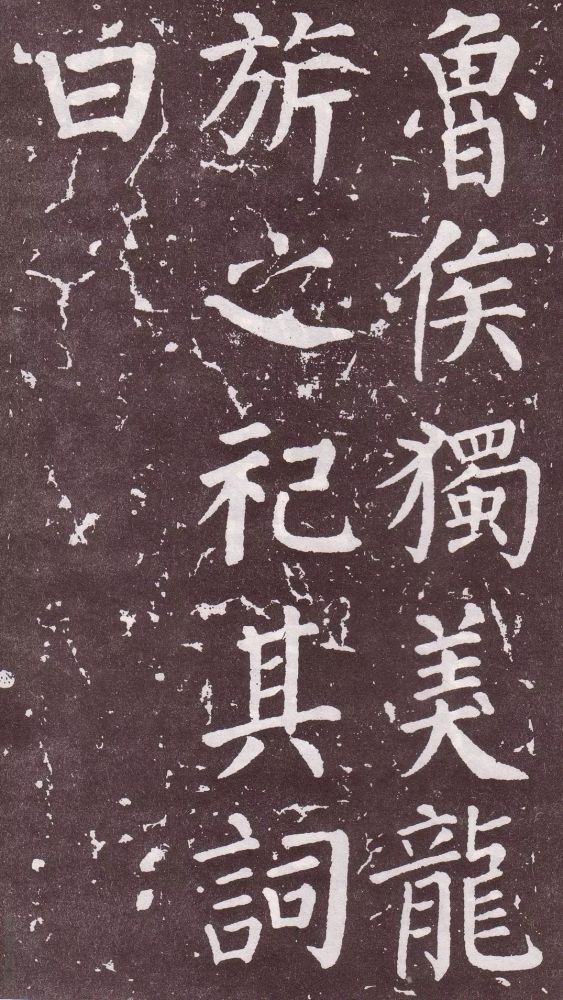 魯侯獨美龍
旂之祀其詞
曰